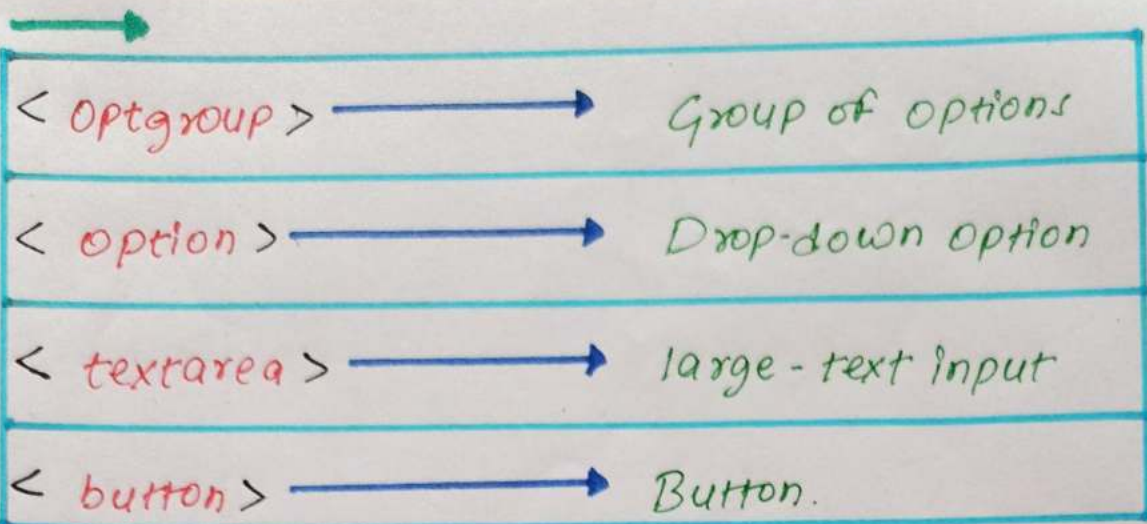 < optgroup > → Group of options
< option > → Drop-down option
< textarea > → large-text input
< button > → Button.